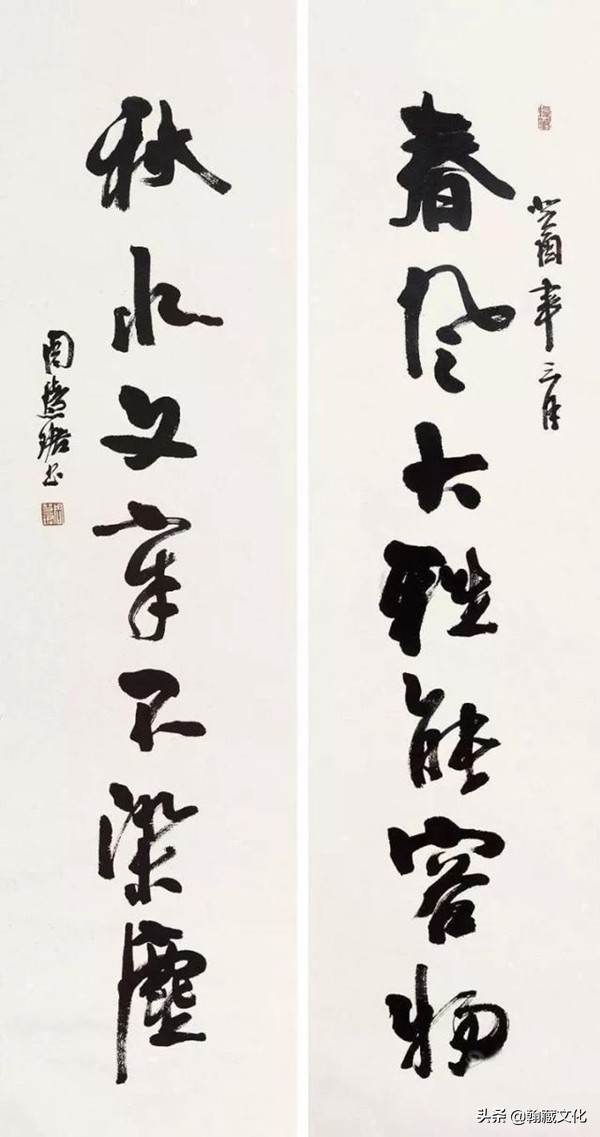 癸酉年三月
春风大雅能容物
秋水文章不染尘
周慧珺书
头条 @翰藏文化